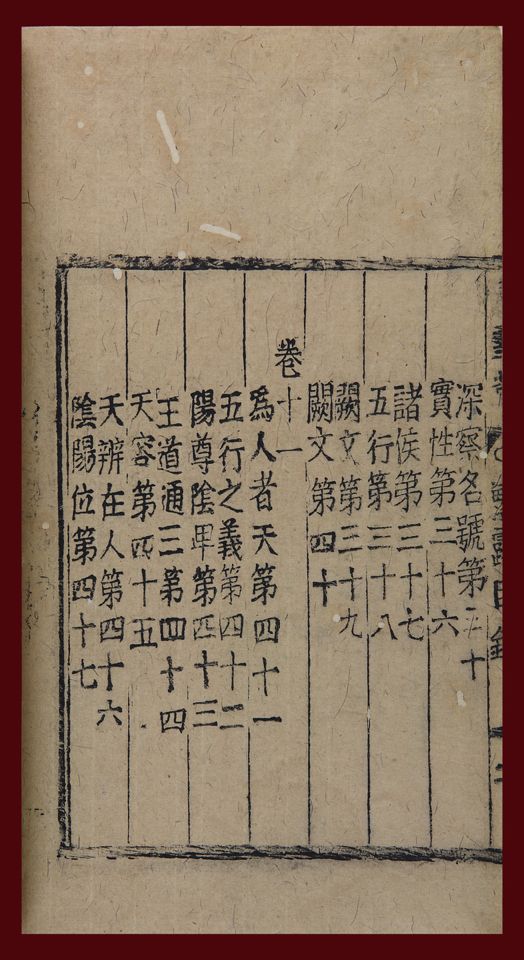 繁露目錄
深察名號第三十
實性第三十六
諸侯第三十七
五行第三十八
闕文第三十九
闕文第四十
卷十一
為人者天第四十一
五行之義第四十二
陽尊陰卑第四十三
王道通三第四十四
天容第四十五
天辨在人第四十六
陰陽位第四十七